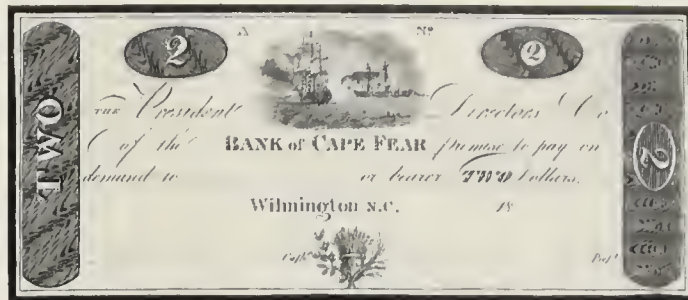 TWO
2
A
Nº
2
THE President Directors & Co
of the BANK of CAPE FEAR promise to pay on
demand to or bearer TWO Dollars.
Wilmington N.C. 18
Cashr. Prest.
2